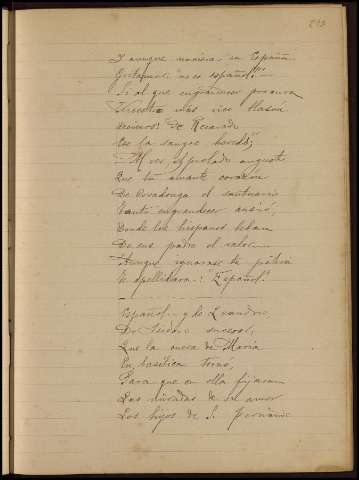 Y aunque naciera en España
no es español!"
Si al que engrandecer procura
más rico blasón
de Recaredo
la sangre heredó,
Al ver, Prelado augusto
Que tu amante corazón
De Covadonga el santuario
Tanto engrandecer ansió,
Donde los hispanos beban
De sus padres el valor
Aunque ignorase tu patria
Te apellidara: ¡Español!
Español y de Leandro,
De Isidoro sucesor,
Que la cueva de María
En basílica tornó,
Para que en ella fijaran
Las miradas de su amor
Los hijos de S. Fernando